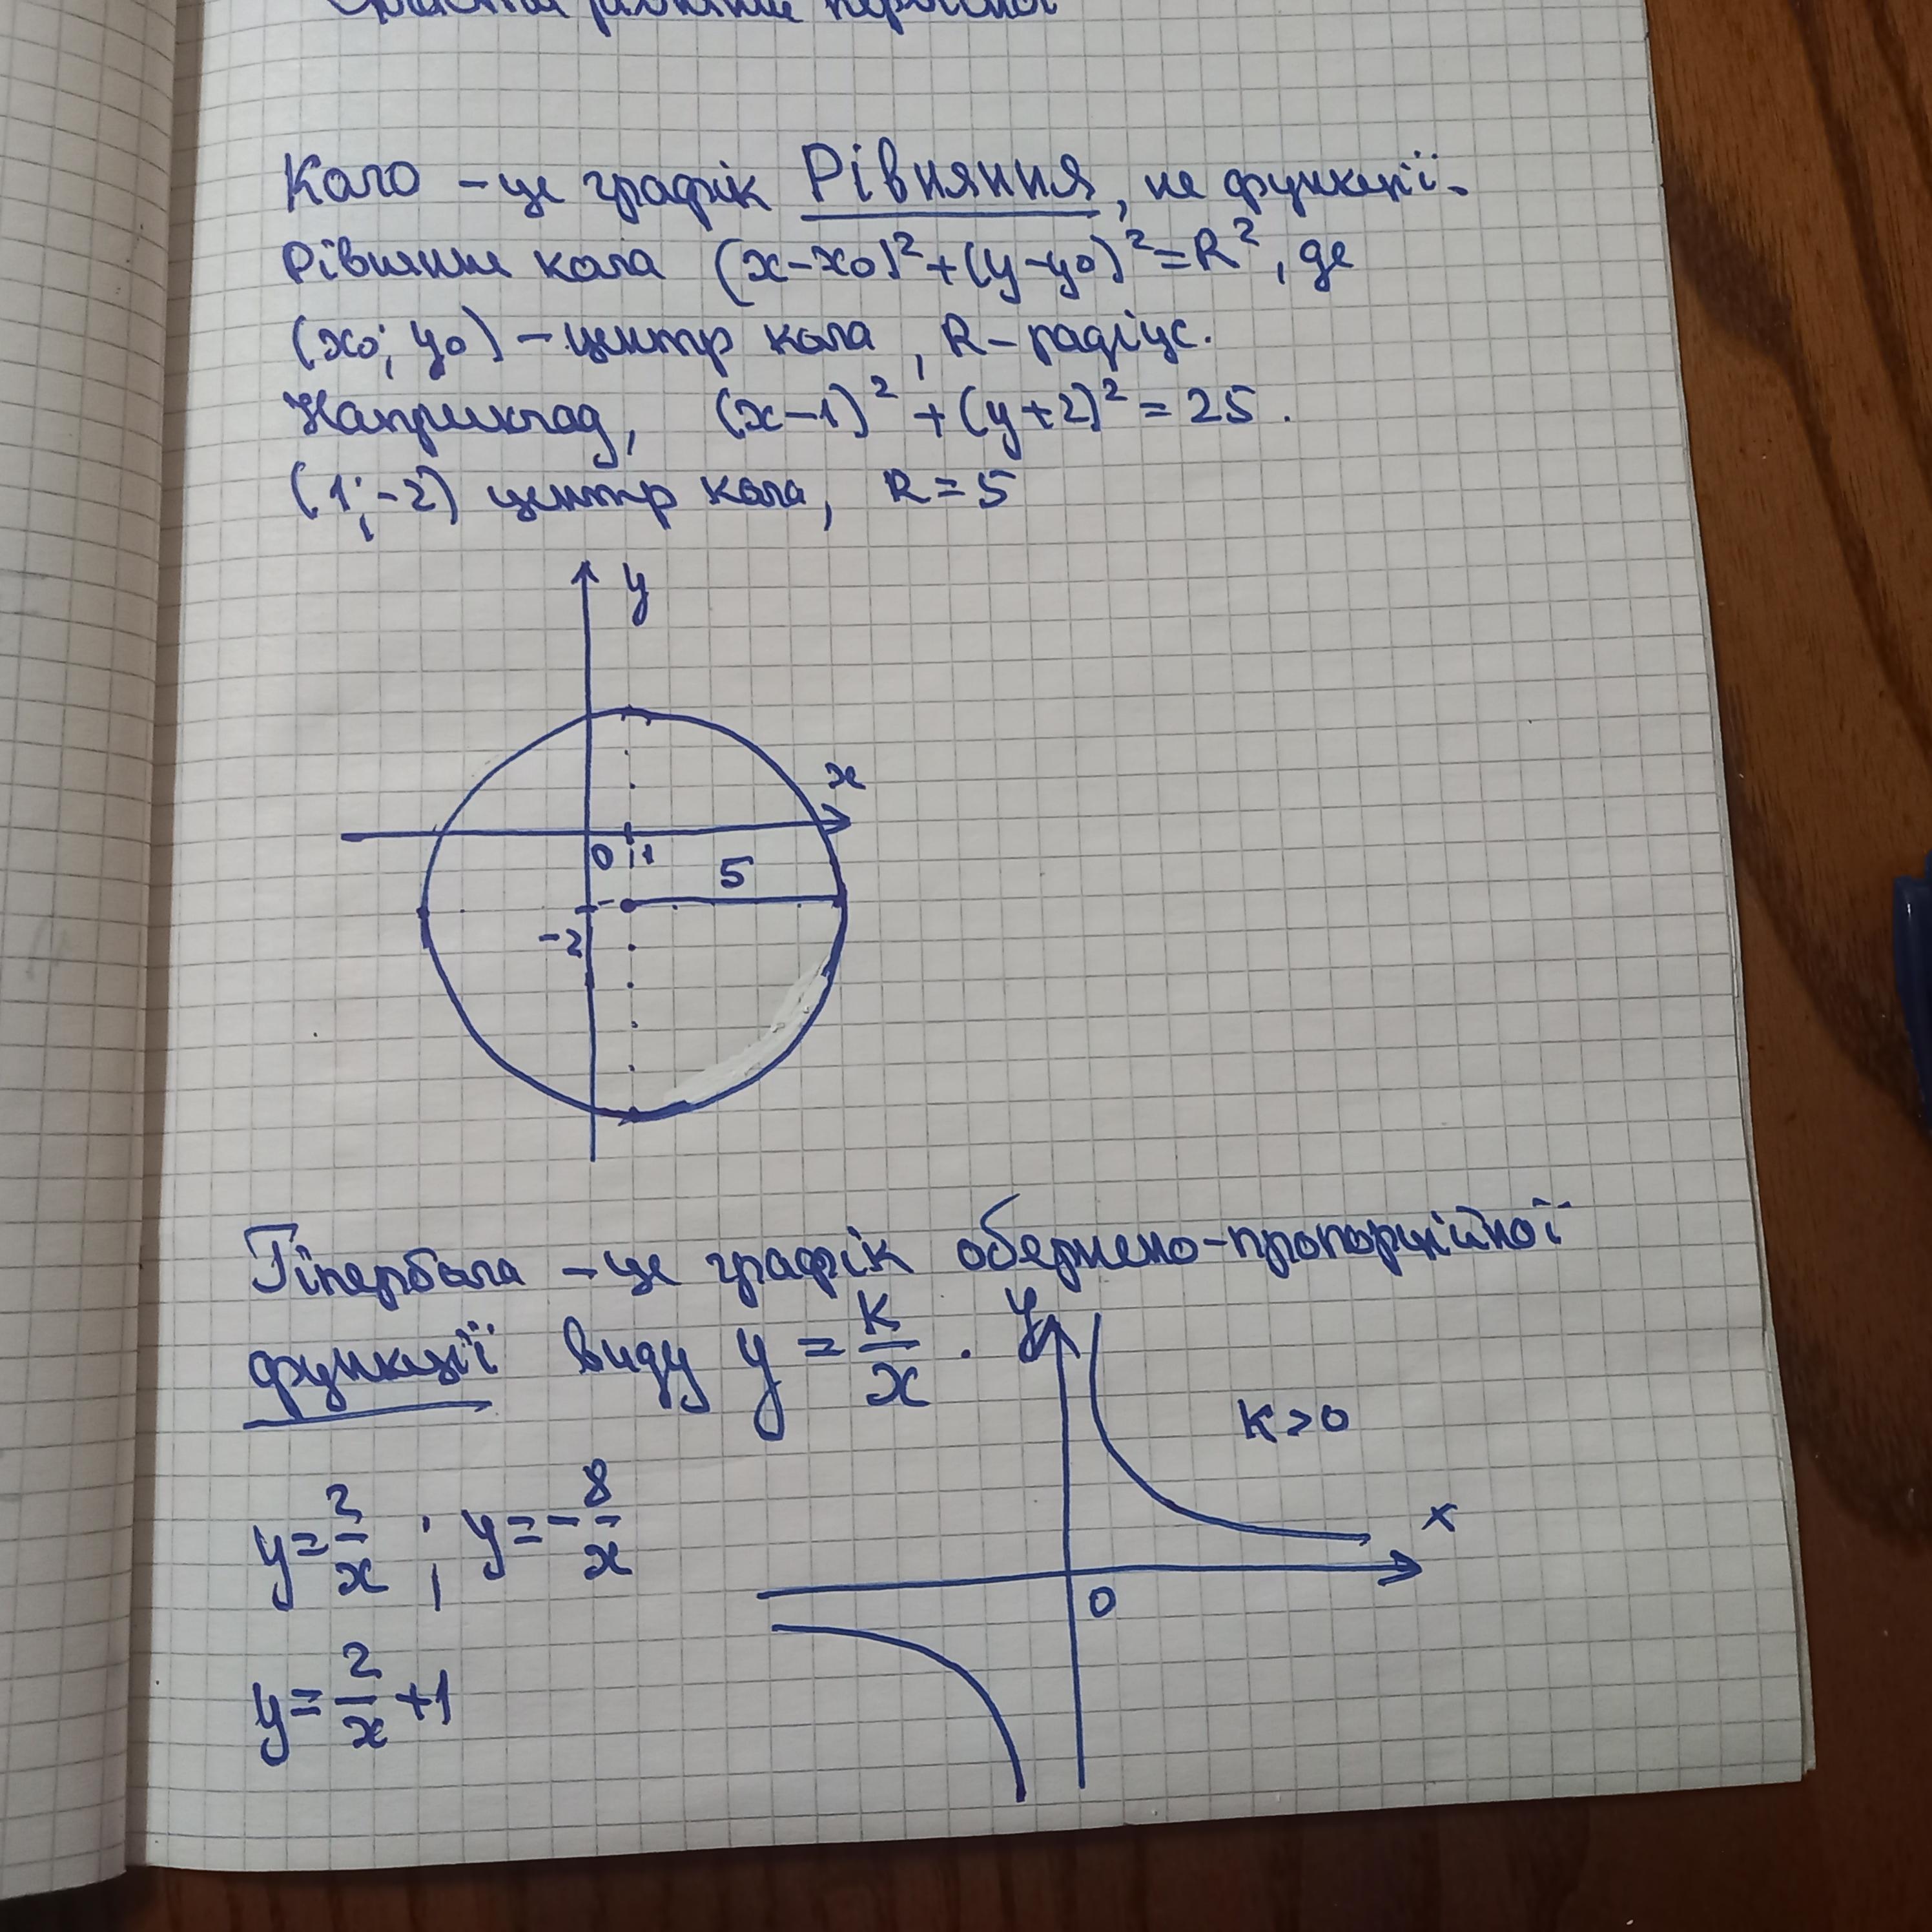 Коло – це графік Рівняння, не функції.
Рівняння кола (x-x0)²+(y-y0)²=R², де
(x0; y0) – центр кола, R – радіус.
Наприклад, (x-1)²+(y+2)²=25.
(1; -2) центр кола, R=5
y
x
0 1
5
-2
Гіпербола – це графік обернено-пропорційної
функції виду y = k/x.
y
K>0
y=2/x ; y=-8/x
x
0
y=2/x+1